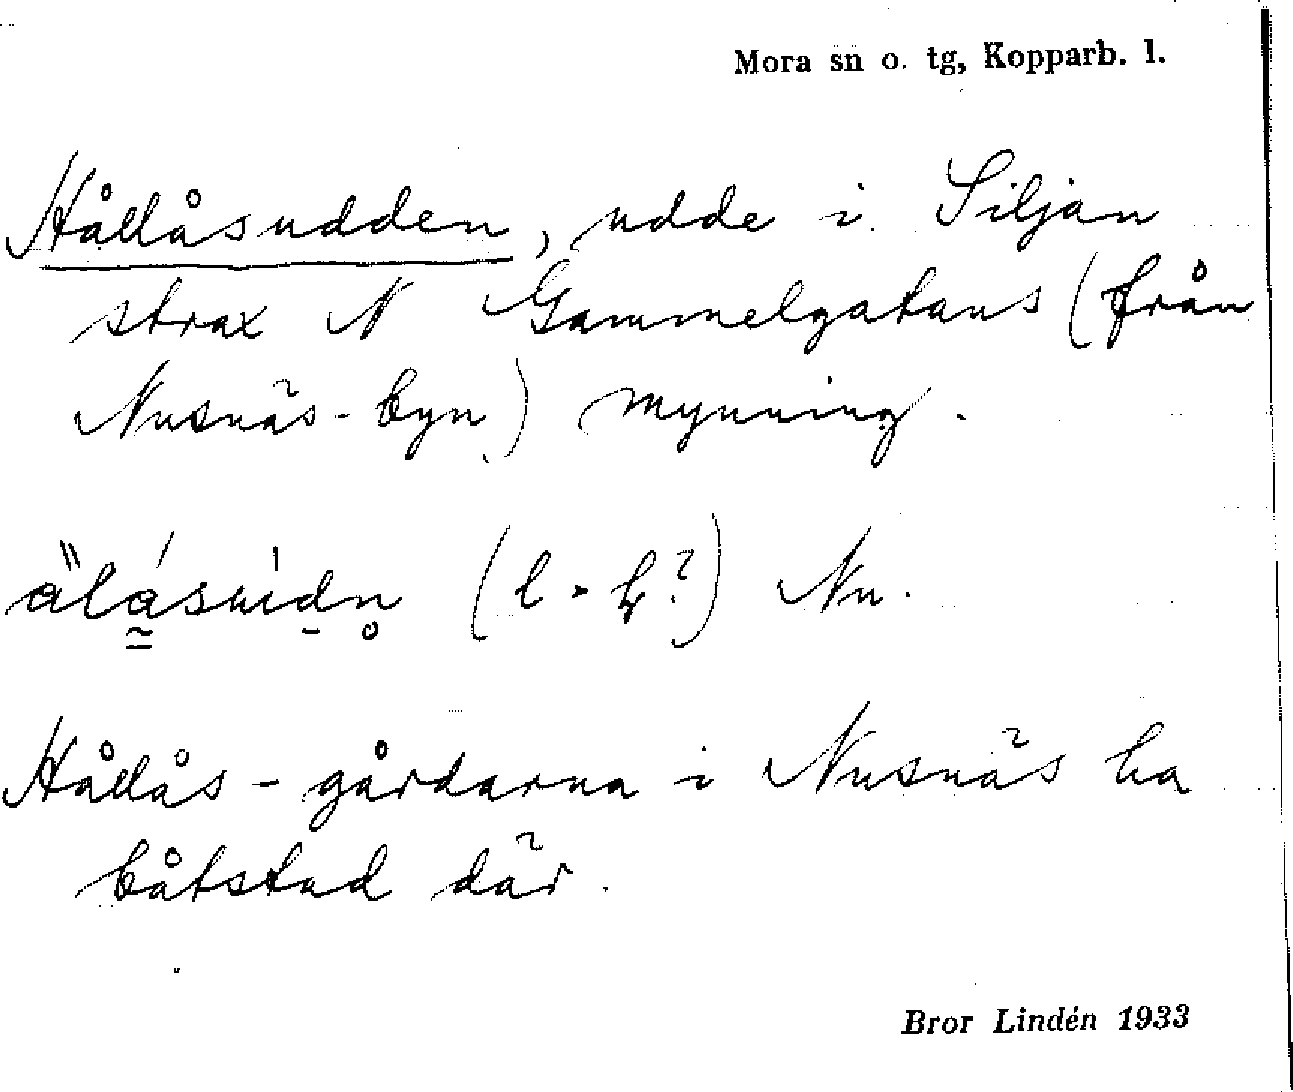 Mora sn o. tg, Kopparb. l.
Hållåsudden, udde i Siljan
strax N Gammelgatans (från
Nusnäs-byn) mynning.
Nu.
Hållås-gårdarna i Nusnäs ha
båtstad där.
Bror Lindén 1933